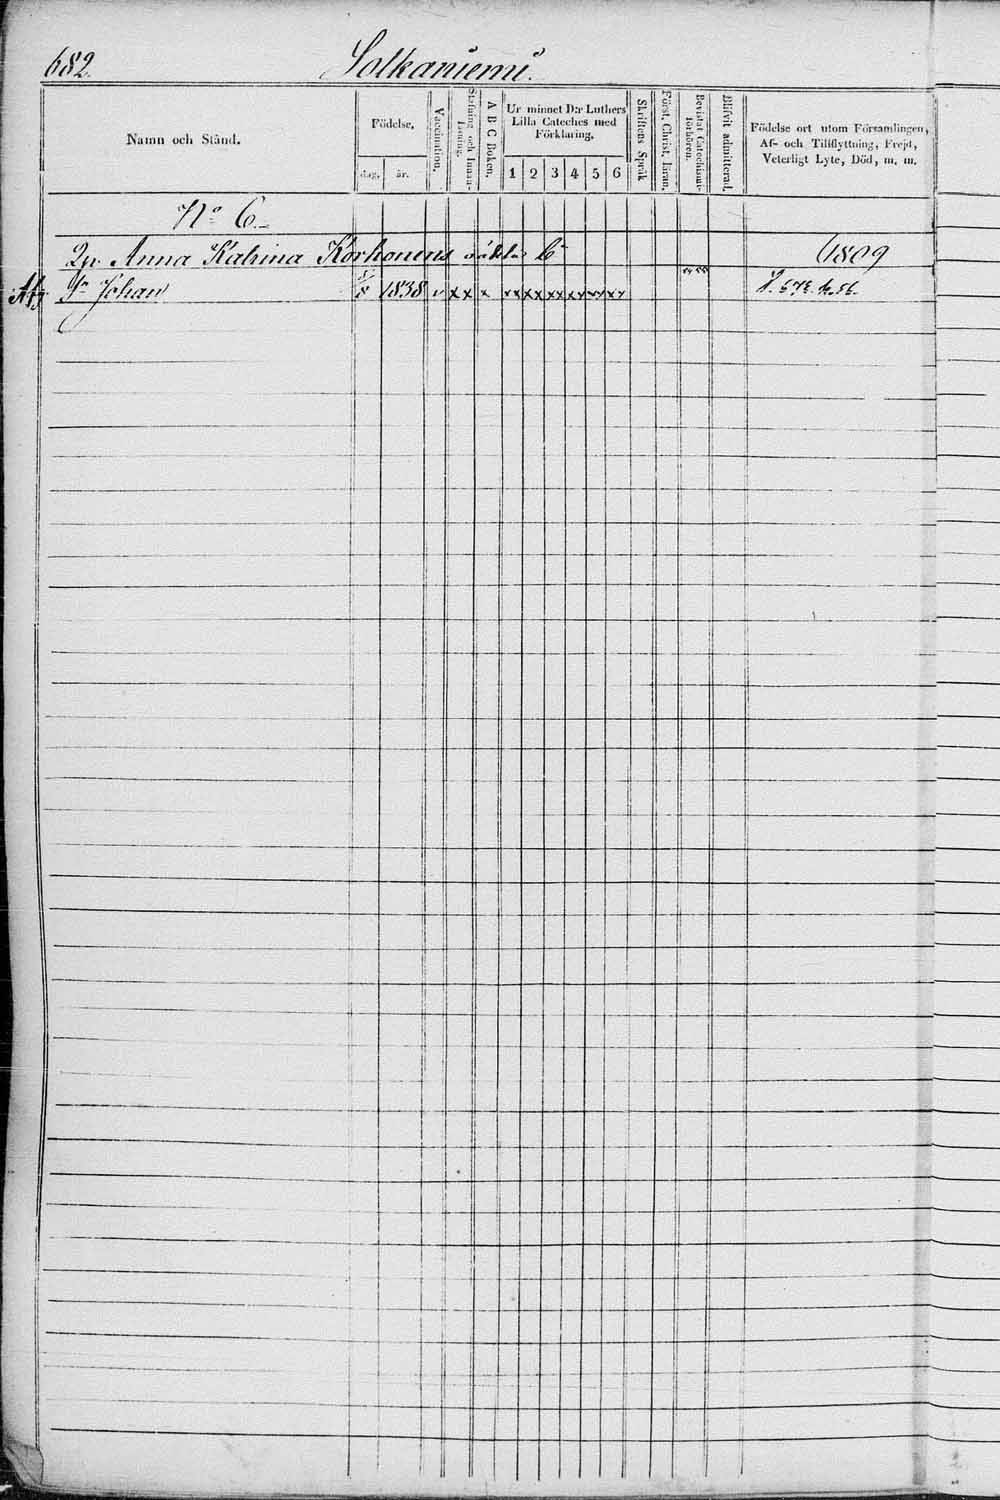 682.
Solkaniemi.
Namn och Stånd.
Födelse,
dag,
år.
Vaccination.
Stafning och Innanläsning.
A B C Boken.
Ur minnet D:r Luthers
Lilla Cateches med
Förklaring,
1 2 3 4 5 6
Skriftens Språk
Först. Christ. läran.
Bevistat Catechismi-förhören.
Blifvit admitterad.
Födelse ort utom Församlingen,
Af- och Tillflyttning, Frejd,
Veterligt Lyte, Död, m. m.
No 6.
Qv. Anna Katrina Korhonens oäkta b. 1809
Afg Sn Johan 1838 v x x x